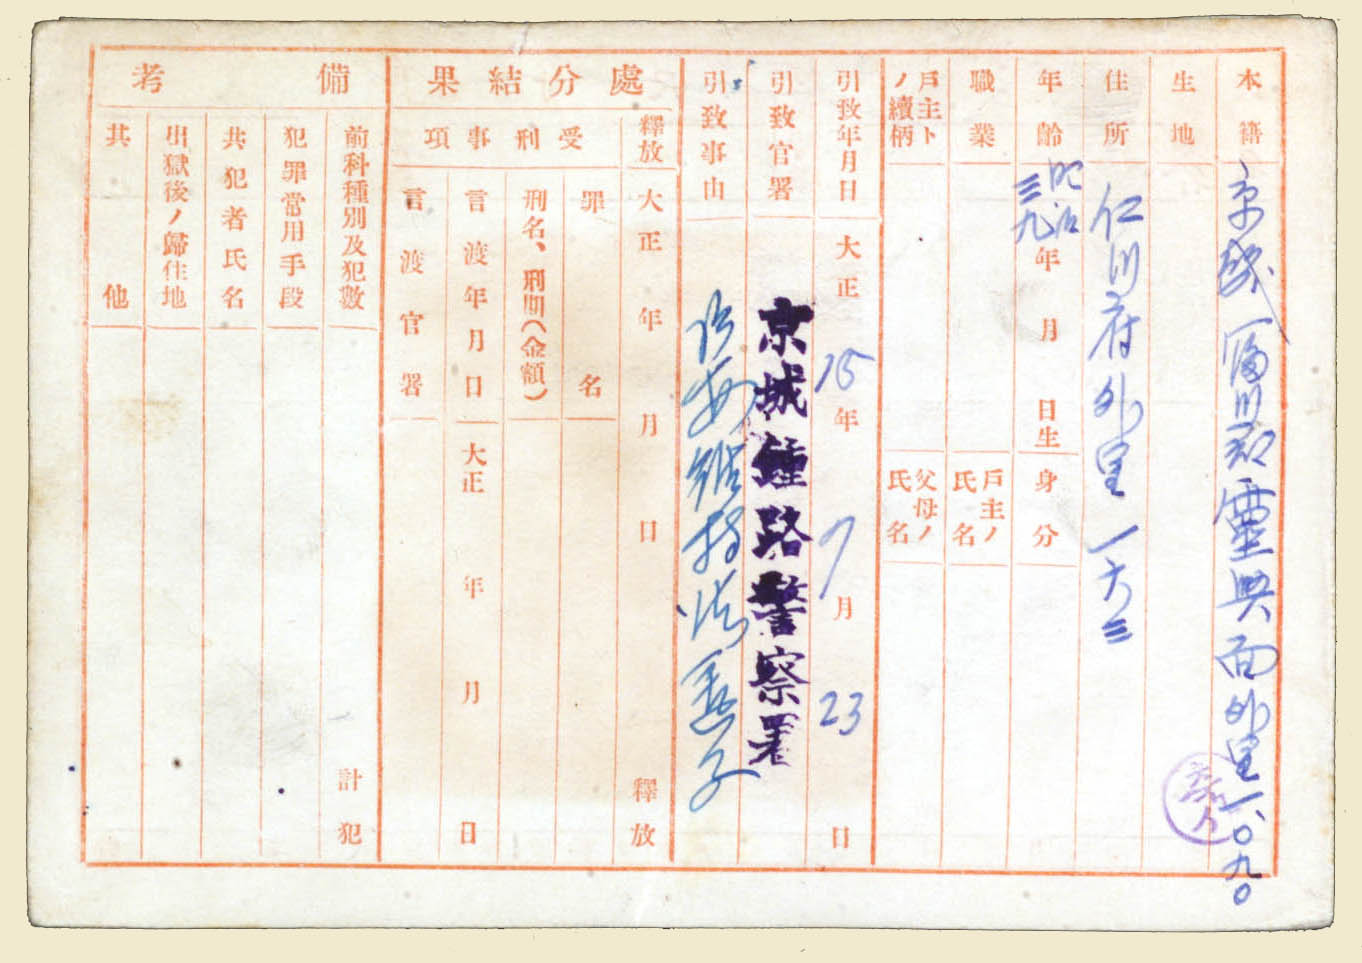 本籍 京畿 富川郡 靈興面 外里 一、〇九〇
生地
住所 仁川府 外里 一六三
年齡 明治三九年 月 日生
身分
職業
戶主ノ氏名
戶主トノ續柄
父母ノ氏名
引致年月日 大正 15年 7月 23日
引致官署 京城鍾路警察署
引致事由 治安維持法
處分結果
釋放 大正 年 月 日 釋放
受刑事項
罪名
刑名、刑期(金額)
言渡年月日 大正 年 月 日
言渡官署
備考
前科種別及犯數 計 犯
犯罪常用手段
共犯者氏名
出獄後ノ歸住地
其他